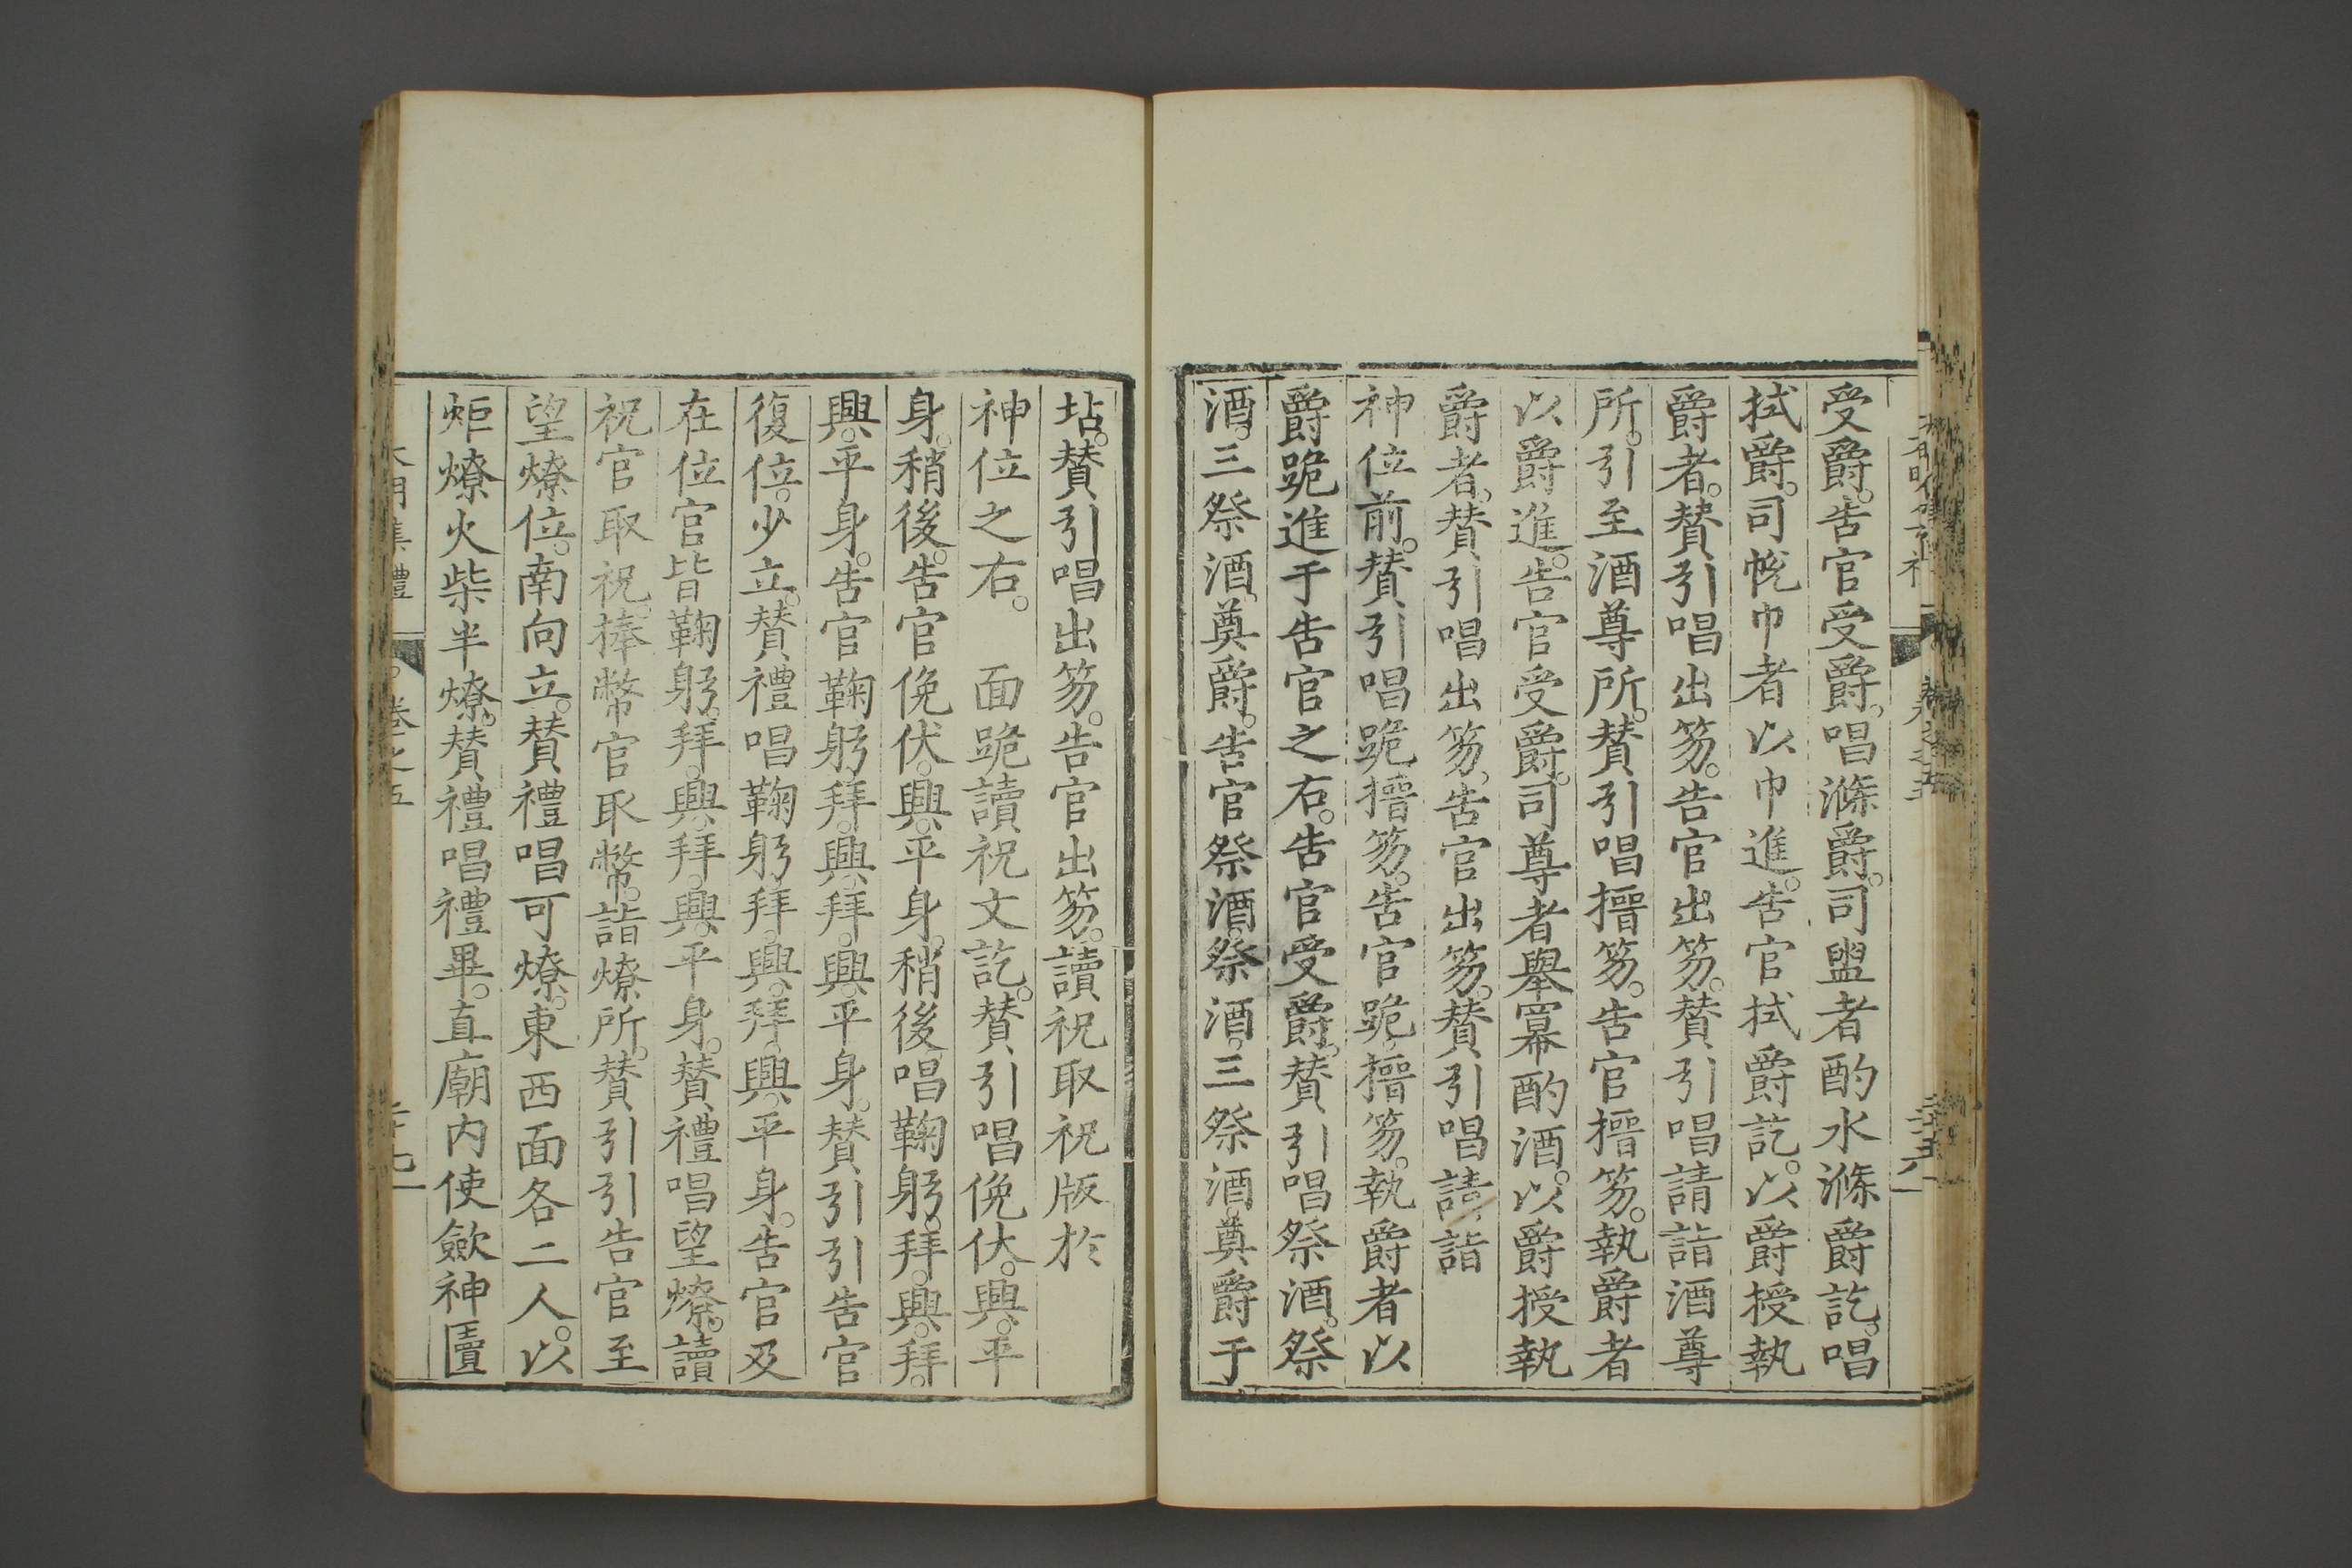 受爵。告官受爵。唱滌爵。司盥者酌水滌爵訖。唱
拭爵。司帨巾者以巾進。告官拭爵訖。以爵授執
爵者。賛引唱出笏。告官出笏。賛引唱請詣酒尊
所。引至酒尊所。賛引唱搢笏。告官搢笏。執爵者
以爵進。告官受爵。司尊者舉冪酌酒。以爵授執
爵者。賛引唱出笏。告官出笏。賛引唱請詣
神位前。賛引唱跪搢笏。告官跪。搢笏。執爵者以
爵跪進于告官之右。告官受爵。賛引唱祭酒。祭
酒。三祭酒。奠爵。告官祭酒。祭酒。三祭酒。奠爵于
坫。賛引唱出笏。告官出笏。讀祝取祝版於
神位之右。　面跪讀祝文訖。賛引唱俛伏。興。平
身。稍後。告官俛伏。興。平身。稍後唱鞠躬。拜。興。拜。
興。平身。告官鞠躬。拜。興。拜。興。平身。賛引引告官
復位。少立。賛禮唱鞠躬。拜。興。拜。興。平身。告官及
在位官皆鞠躬。拜。興。拜。興。平身。賛禮唱望燎。讀
祝官取祝。捧幣官取幣。詣燎所。賛引引告官至
望燎位。南向立。賛禮唱可燎。東西面各二人。以
炬燎火柴半燎。賛禮唱禮畢。直廟内使斂神匵
大明集禮　卷之五